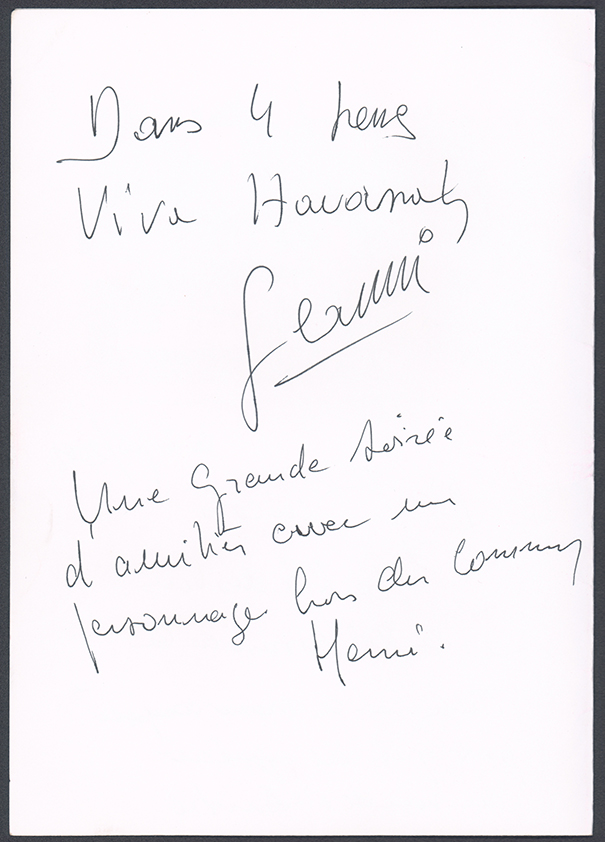 Dans 4 heures
Viva Havanah
Une Grande soirée
d'amitiés avec un
personnage hors du commun